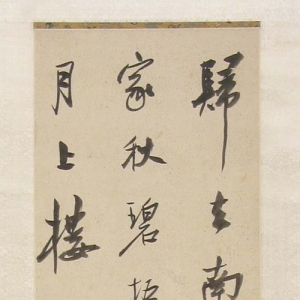 歸去南
家秋碧梧
月上樓